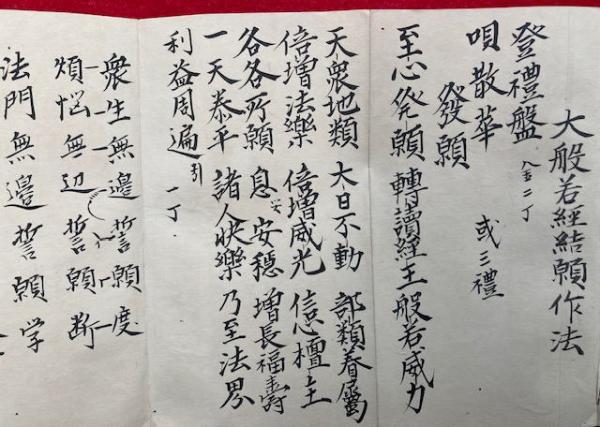 大般若經結願作法
登禮盤 二丁
唄散華 或三禮
發願
至心発願 轉讀經王般若威力
天衆地類 大日不動 部類眷屬
倍増法樂 倍増威光 信心檀主
各各所願 息安穩 増長福壽
一天泰平 諸人快樂 乃至法界
利益周遍 引 一丁
衆生無邊誓願度
煩悩無辺誓願断
法門無邊誓願学